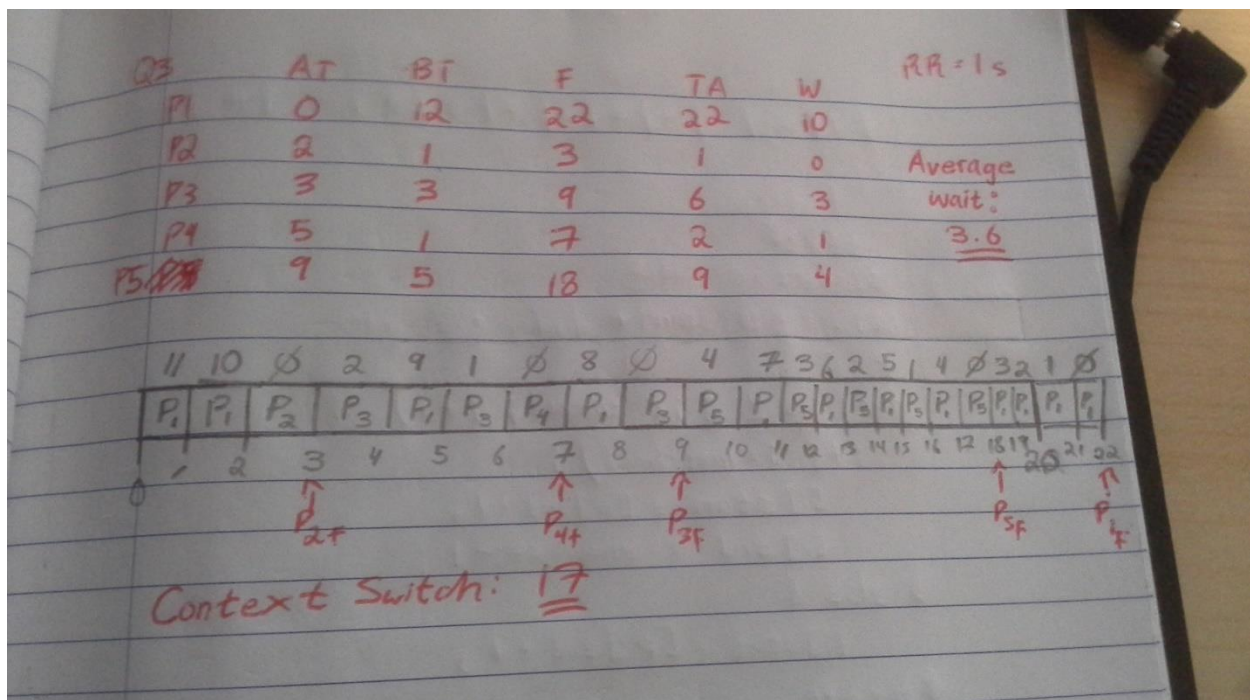 Q3 AT BT F TA W RR = 1s
P1 0 12 22 22 10
P2 2 1 3 1 0 Average
P3 3 3 9 6 3 wait:
P4 5 1 7 2 1 3.6
P5 9 5 18 9 4
11 10 0 2 9 1 0 8 0 4 7 3 6 2 5 1 4 0 3 2 1 0
P1 P1 P2 P3 P1 P3 P4 P1 P3 P5 P P5 P1 P5 P1 P5 P1 P5 P1 P1 P1 P1
0 1 2 3 4 5 6 7 8 9 10 11 12 13 14 15 16 17 18 19 20 21 22
P2F P4F P3F P5F P1F
Context Switch: 17